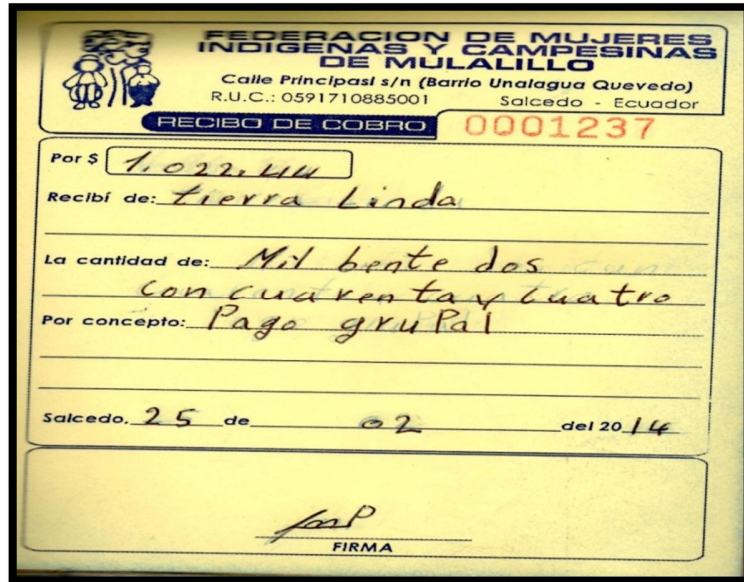 FEDERACION DE MUJERES
INDIGENAS Y CAMPESINAS
DE MULALILLO
Calle Principasl s/n (Barrio Unalagua Quevedo)
R.U.C.: 0591710885001 Salcedo - Ecuador
RECIBO DE COBRO 0001237
Por $ 1.022,44
Recibí de: tierra Linda
La cantidad de: Mil bente dos
con cuarenta y cuatro
Por concepto: Pago gruPal
Salcedo, 25 de 02 del 2014
FIRMA